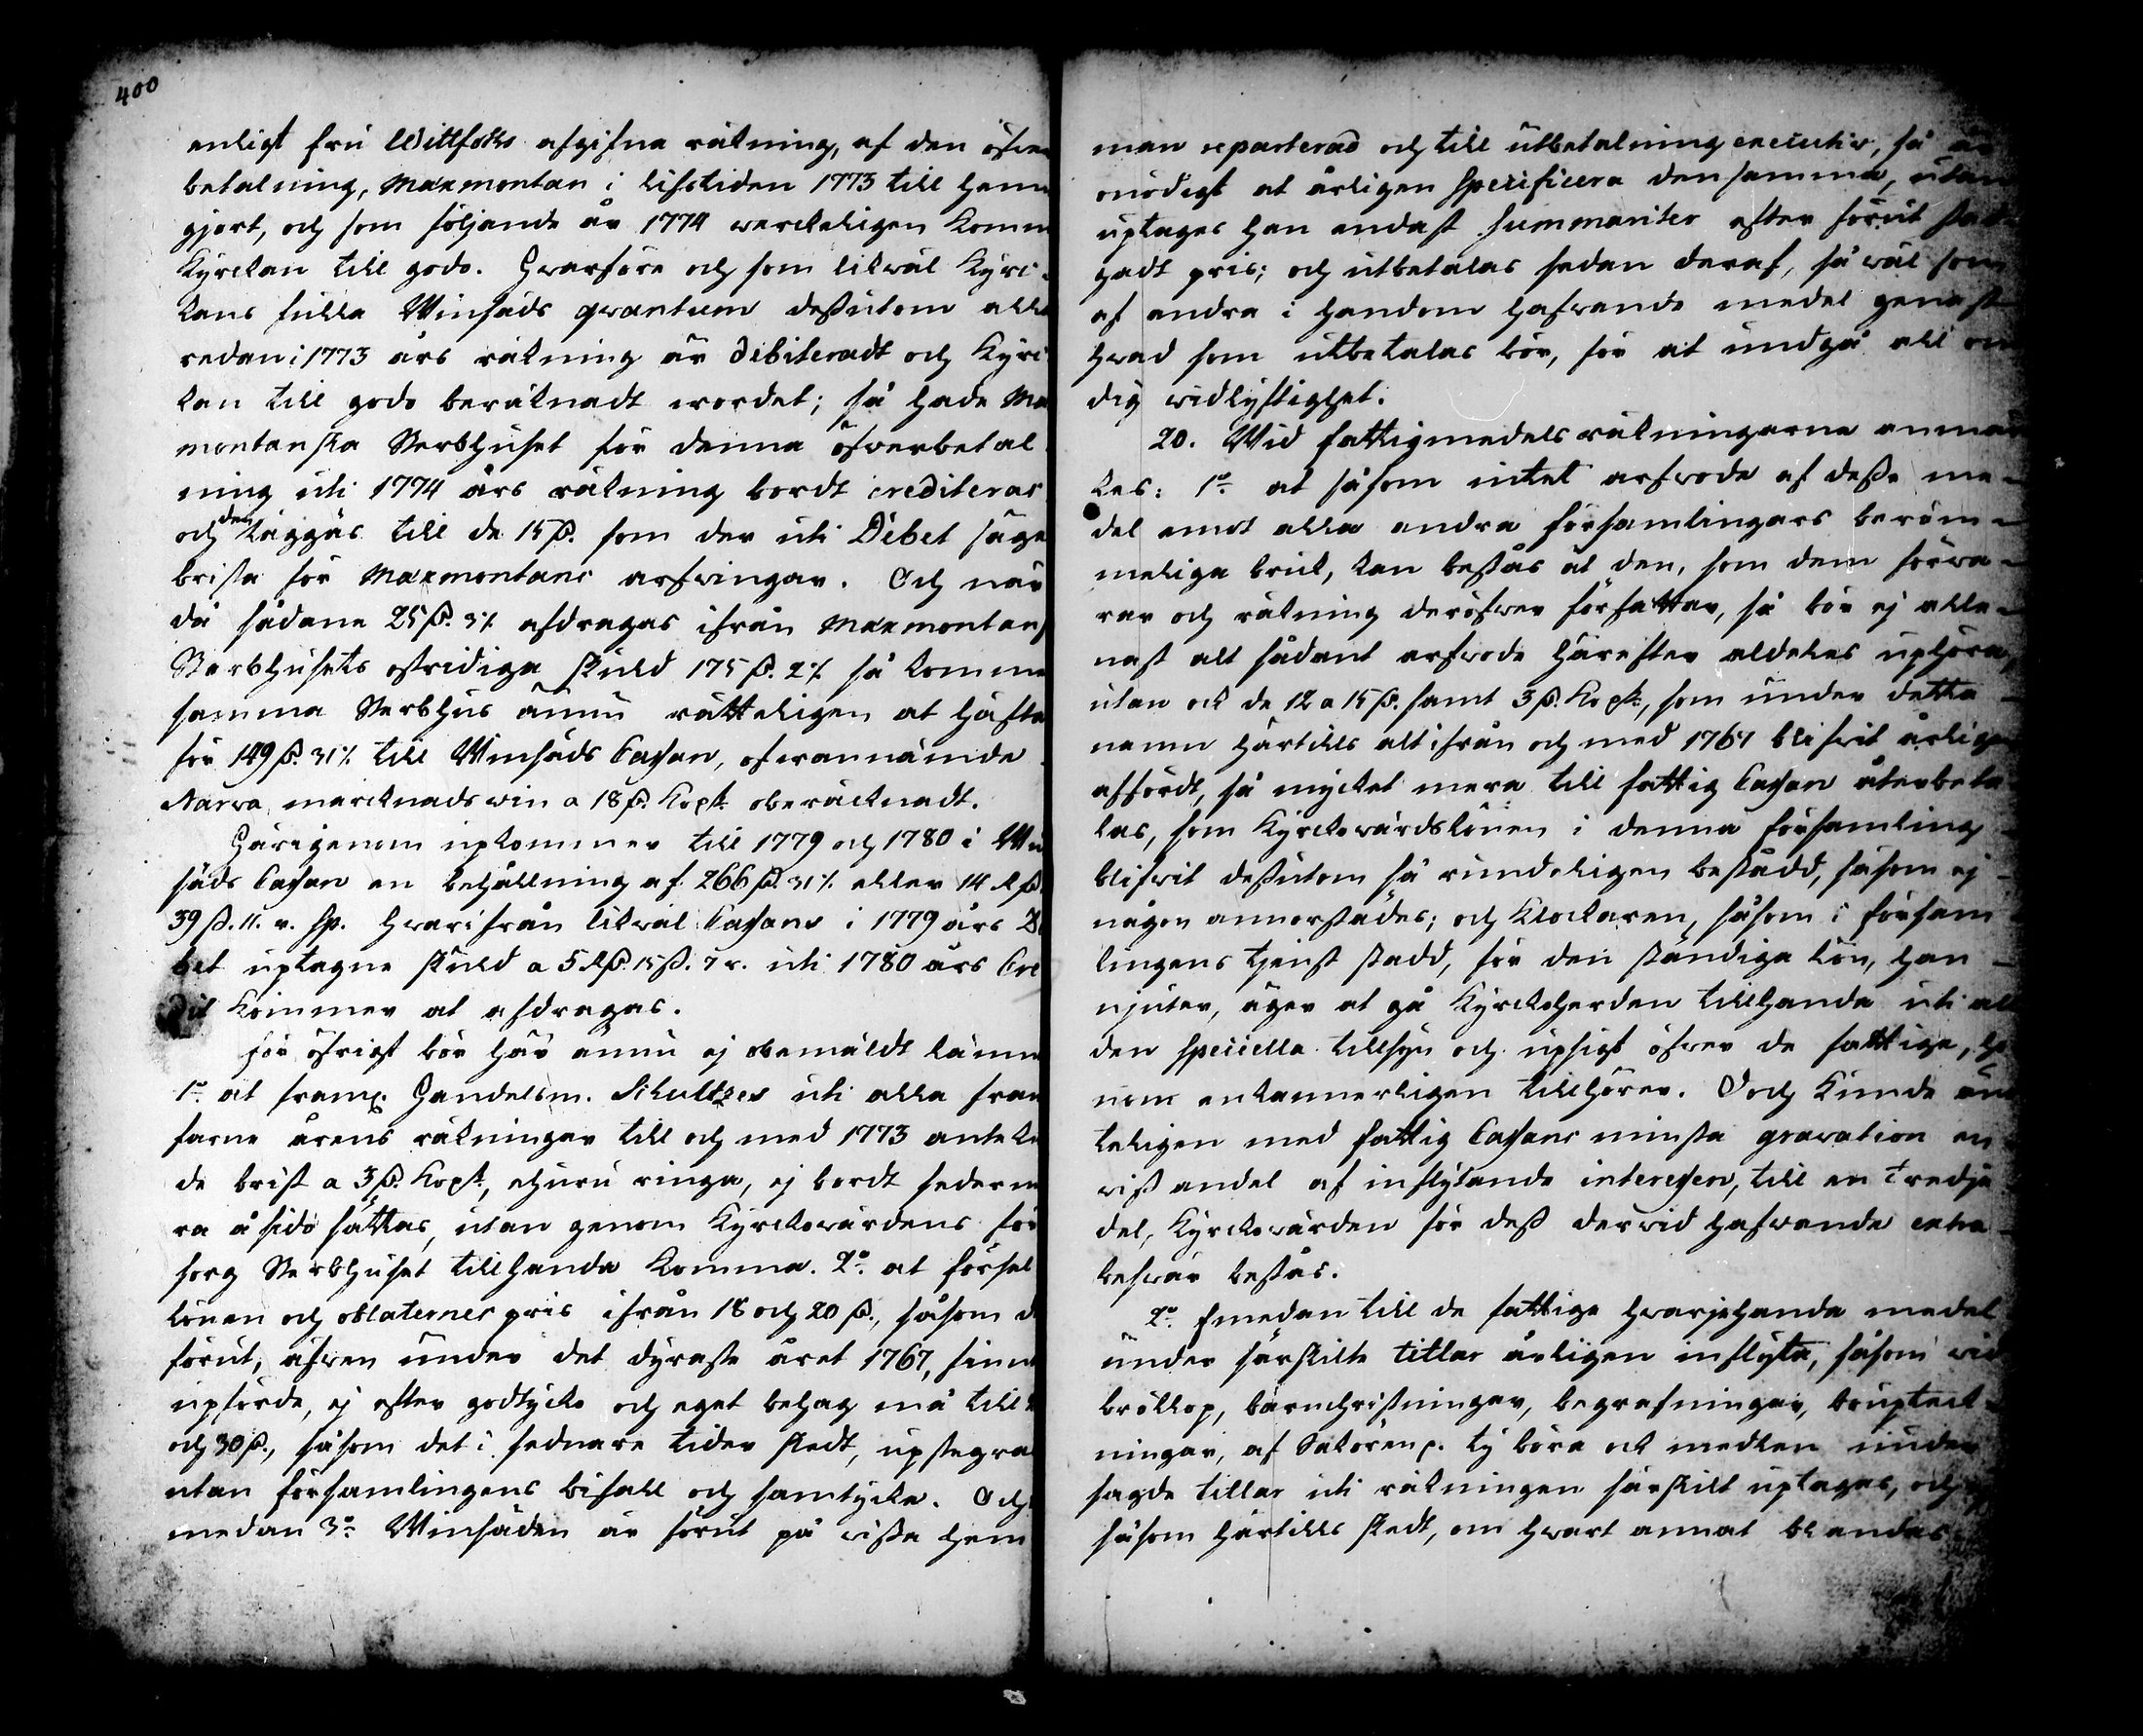 400
enligt fru Wittfoths afgifna räkning, af den öfver
betalning, Maxmontan i lifstiden 1773 till henne
gjort, och som följande år 1774 werckeligen komm
Kyrckan till godo. Hwarföre och som likwäl Kyrc-
kans fulla Winsäds qwantum dessutom alle
redan i 1773 års räkning är debiteradt och Kyrc
kan till godo beräknadt wordet; så hade Max
montanska Sterbhuset för denna öfwerbetal
ning uti 1774 års räkning bordt crediteras
och den läggas till de 15 ß. som der uti Debet säges
brista för Maxmontans arfwingar. Och när
då sådane 25 ß. 3 1/. afdragas ifrån Maxmontans
Sterbhusets ostridiga skuld 175 ß. 2 1/. så komme
samma Sterbhus ännu rätteligen at häfta
för 149 ß. 31/. till Winsäds Cassan, ofwannämde
Narva marcknads win a 18 ß. Kopt. oberäcknadt.
Härigenom upkommer till 1779 och 1780 i Win
säds Cassan en behållning af 266 ß. 31/. eller 14 Rß.
39 ß. 11. r. sp. hwarifrån likwäl Cassans i 1779 års De
bet uptagne skuld a 5 Rß. 15 ß. 7 r. uti 1780 års Cre
dit kommer at afdragas.
För öfrigt bör här ännu ej obemäldt lämn
1o at fram. Handelsm. Schultzes uti alla fram
farne årens räkningar till och med 1773 anteckn
de brist a 3 ß. Kopt, ehuru ringa, ej bordt sederm
ra å sido sättas, utan genom Kyrckowärdens för
sorg Sterbhuset tillhanda komma. 2o at försel
lönen och oblaternes pris ifrån 18 och 20 ß., såsom d
förut, äfwen under det dyraste året 1767, finnes
upförde, ej efter godtycko och eget behag må till
och 30 ß., såsom det i sednare tider skedt, upstegra
utan församlingens bifall och samtycke. Och
medan 3o Winsäden är förut på wissa hem
man reparterad och till utbetalning executiv, så är
onödigt at årligen specificera densamma, utan
uptages han endast summariter efter förut stad-
gadt pris; och utbetalas sedan deraf, så wäl som
af andra i handom hafwande medel genast
hwad som utbetalas bör, för at undgå all onö
dig widlyftighet.
20. Wid fattigmedels räkningarne anmär
kes: 1o at såsom intet arfwode af desse me-
del emot alla andra församlingars beröm-
meliga bruk, kan bestås åt den, som dem förwa-
rar och räkning deröfwer författar, så bör ej alle-
nast alt sådant arfwode härefter aldeles uphöra,
utan ock de 12 a 15 ß. samt 3 ß. Kopt:, som under detta
namn härtills alt ifrån och med 1764 blifwit årligen
affördt, så mycket mera till fattig Cassan återbeta
las, som Kyrckowärdslönen i denna församling
blifwit dessutom så rundeligen bestådd, såsom ej
någon annorstädes; och Klockaren, såsom i försam
lingens tjenst stadd, för den ständiga lön, han
njuter, äger at gå Kyrckoherden tillhanda uti al
den speciella tillsyn och upsigt öfwer de fattige, ho
nom enkannerligen tillhörer. Doch kunde än
teligen med fattig Cassans minsta gravation en
wiss andel af inflytande interessen, till en tredje
del, Kyrckowärden för dess derwid hafwande extra
beswär bestås.
2o Emedan till de fattige hwarjehanda medel
under särskilte titlar årligen inflyta, såsom wid
bröllop, barnchristningar, begrafningar, bouptect-
ningar, af Saköre p. ty böra ock medlen under
sagde titlar uti räkningen särskilt uptages, och ej
såsom härtills skedt, om hwart annat blandas.